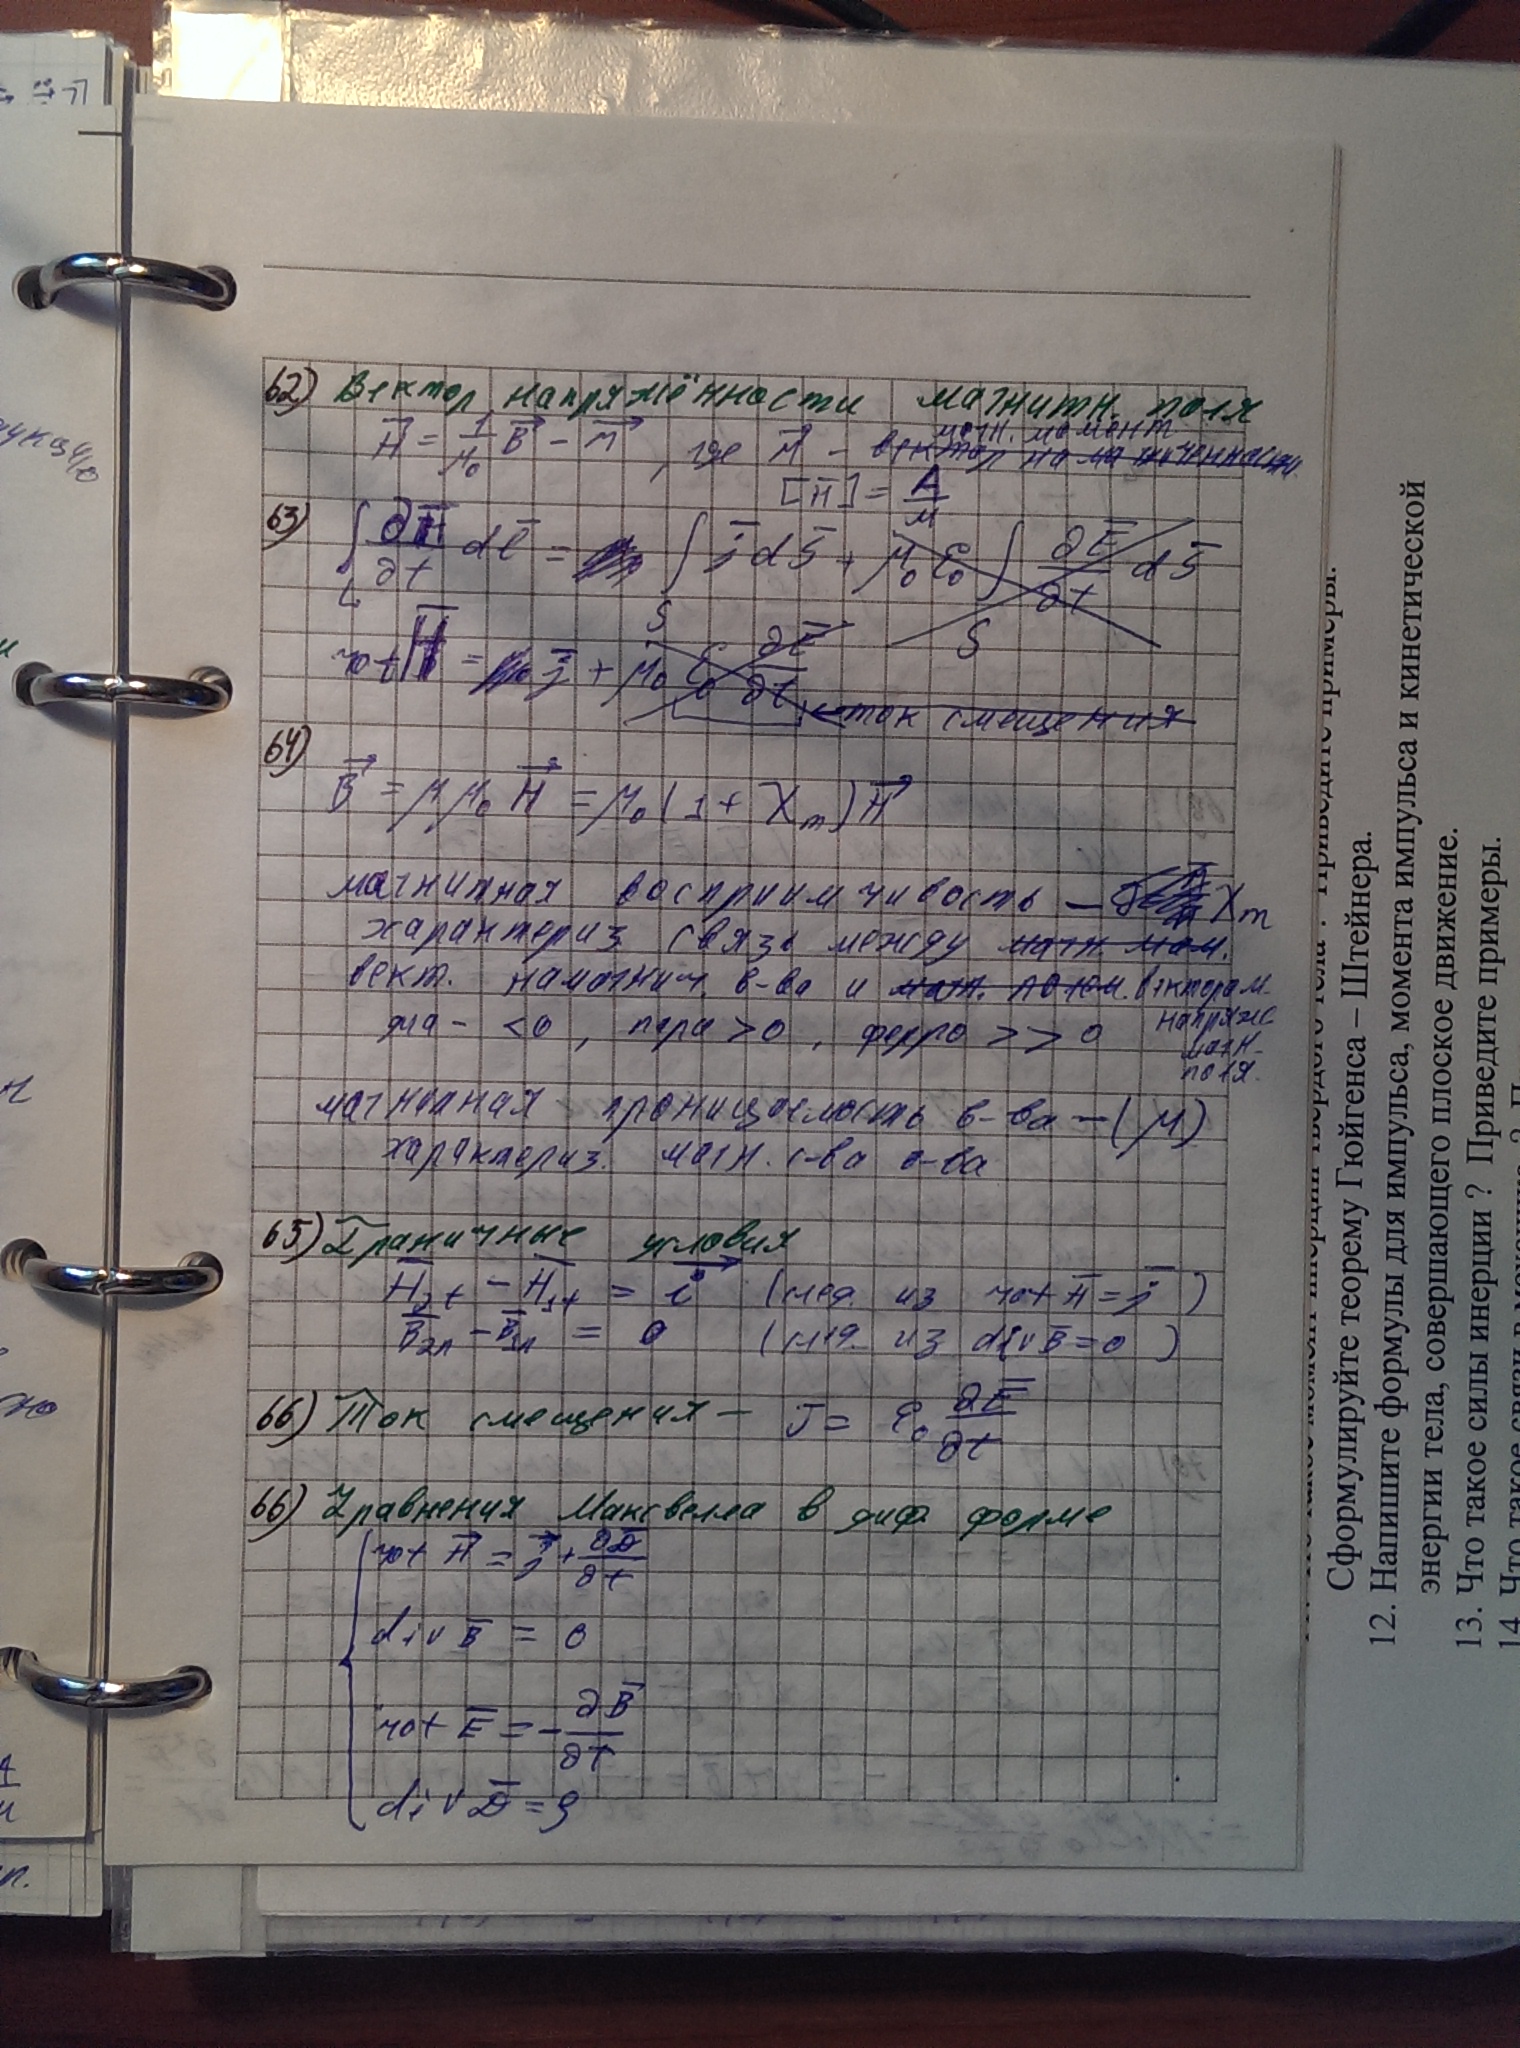 62) Вектор напряжённости магнитн. поля
H = 1/μ₀ B − M , где M − магн. момент
вектор намагниченности
[H] = А/м
63) ∫_L ∂H/∂t dl = ∫_S j dS + μ₀ ε₀ ∫_S ∂E/∂t dS
rot H = μ₀ j + μ₀ ε₀ ∂E/∂t
← ток смещения
64)
B = μ μ₀ H = μ₀ (1 + χm) H
магнитная восприимчивость − χm
характериз. связь между магн. мом.
вект. намагнич. в-ва и магн. полем. вектором
напряж.
магн.
поля.
диа- < 0 , пара > 0 , ферро >> 0
магнитная проницаемость в-ва − (μ)
характериз. магн. с-ва в-ва
65) Граничные условия
H₂τ − H₁τ = i (след. из rot H = j)
B₂n − B₁n = 0 (след. из div B = 0)
66) Ток смещения − J = ε₀ ∂E/∂t
66) Уравнения Максвелла в диф. форме
rot H = j + ∂D/∂t
div B = 0
rot E = − ∂B/∂t
div D = ρ
Сформулируйте теорему Гюйгенса – Штейнера.
12. Напишите формулы для импульса, момента импульса и кинетической
энергии тела, совершающего плоское движение.
13. Что такое силы инерции ? Приведите примеры.